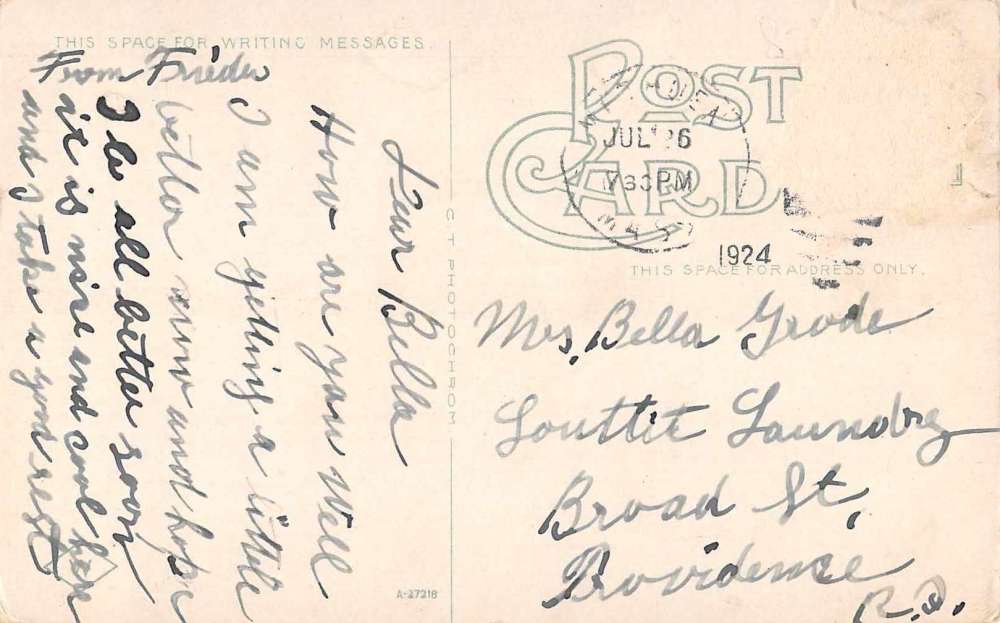 THIS SPACE FOR WRITING MESSAGES.
Dear Bella
How are you Well
I am getting a little
better now and hope
I be all better soon,
it is nice and cool here
and I take a good rest
From Frieda
C T PHOTOCHROM
A-27218
POST CARD
JUL 26
7 30 PM
MASS
1924
THIS SPACE FOR ADDRESS ONLY.
Mrs. Bella Grode
Louttit Laundry
Broad St,
Providence
R.I.